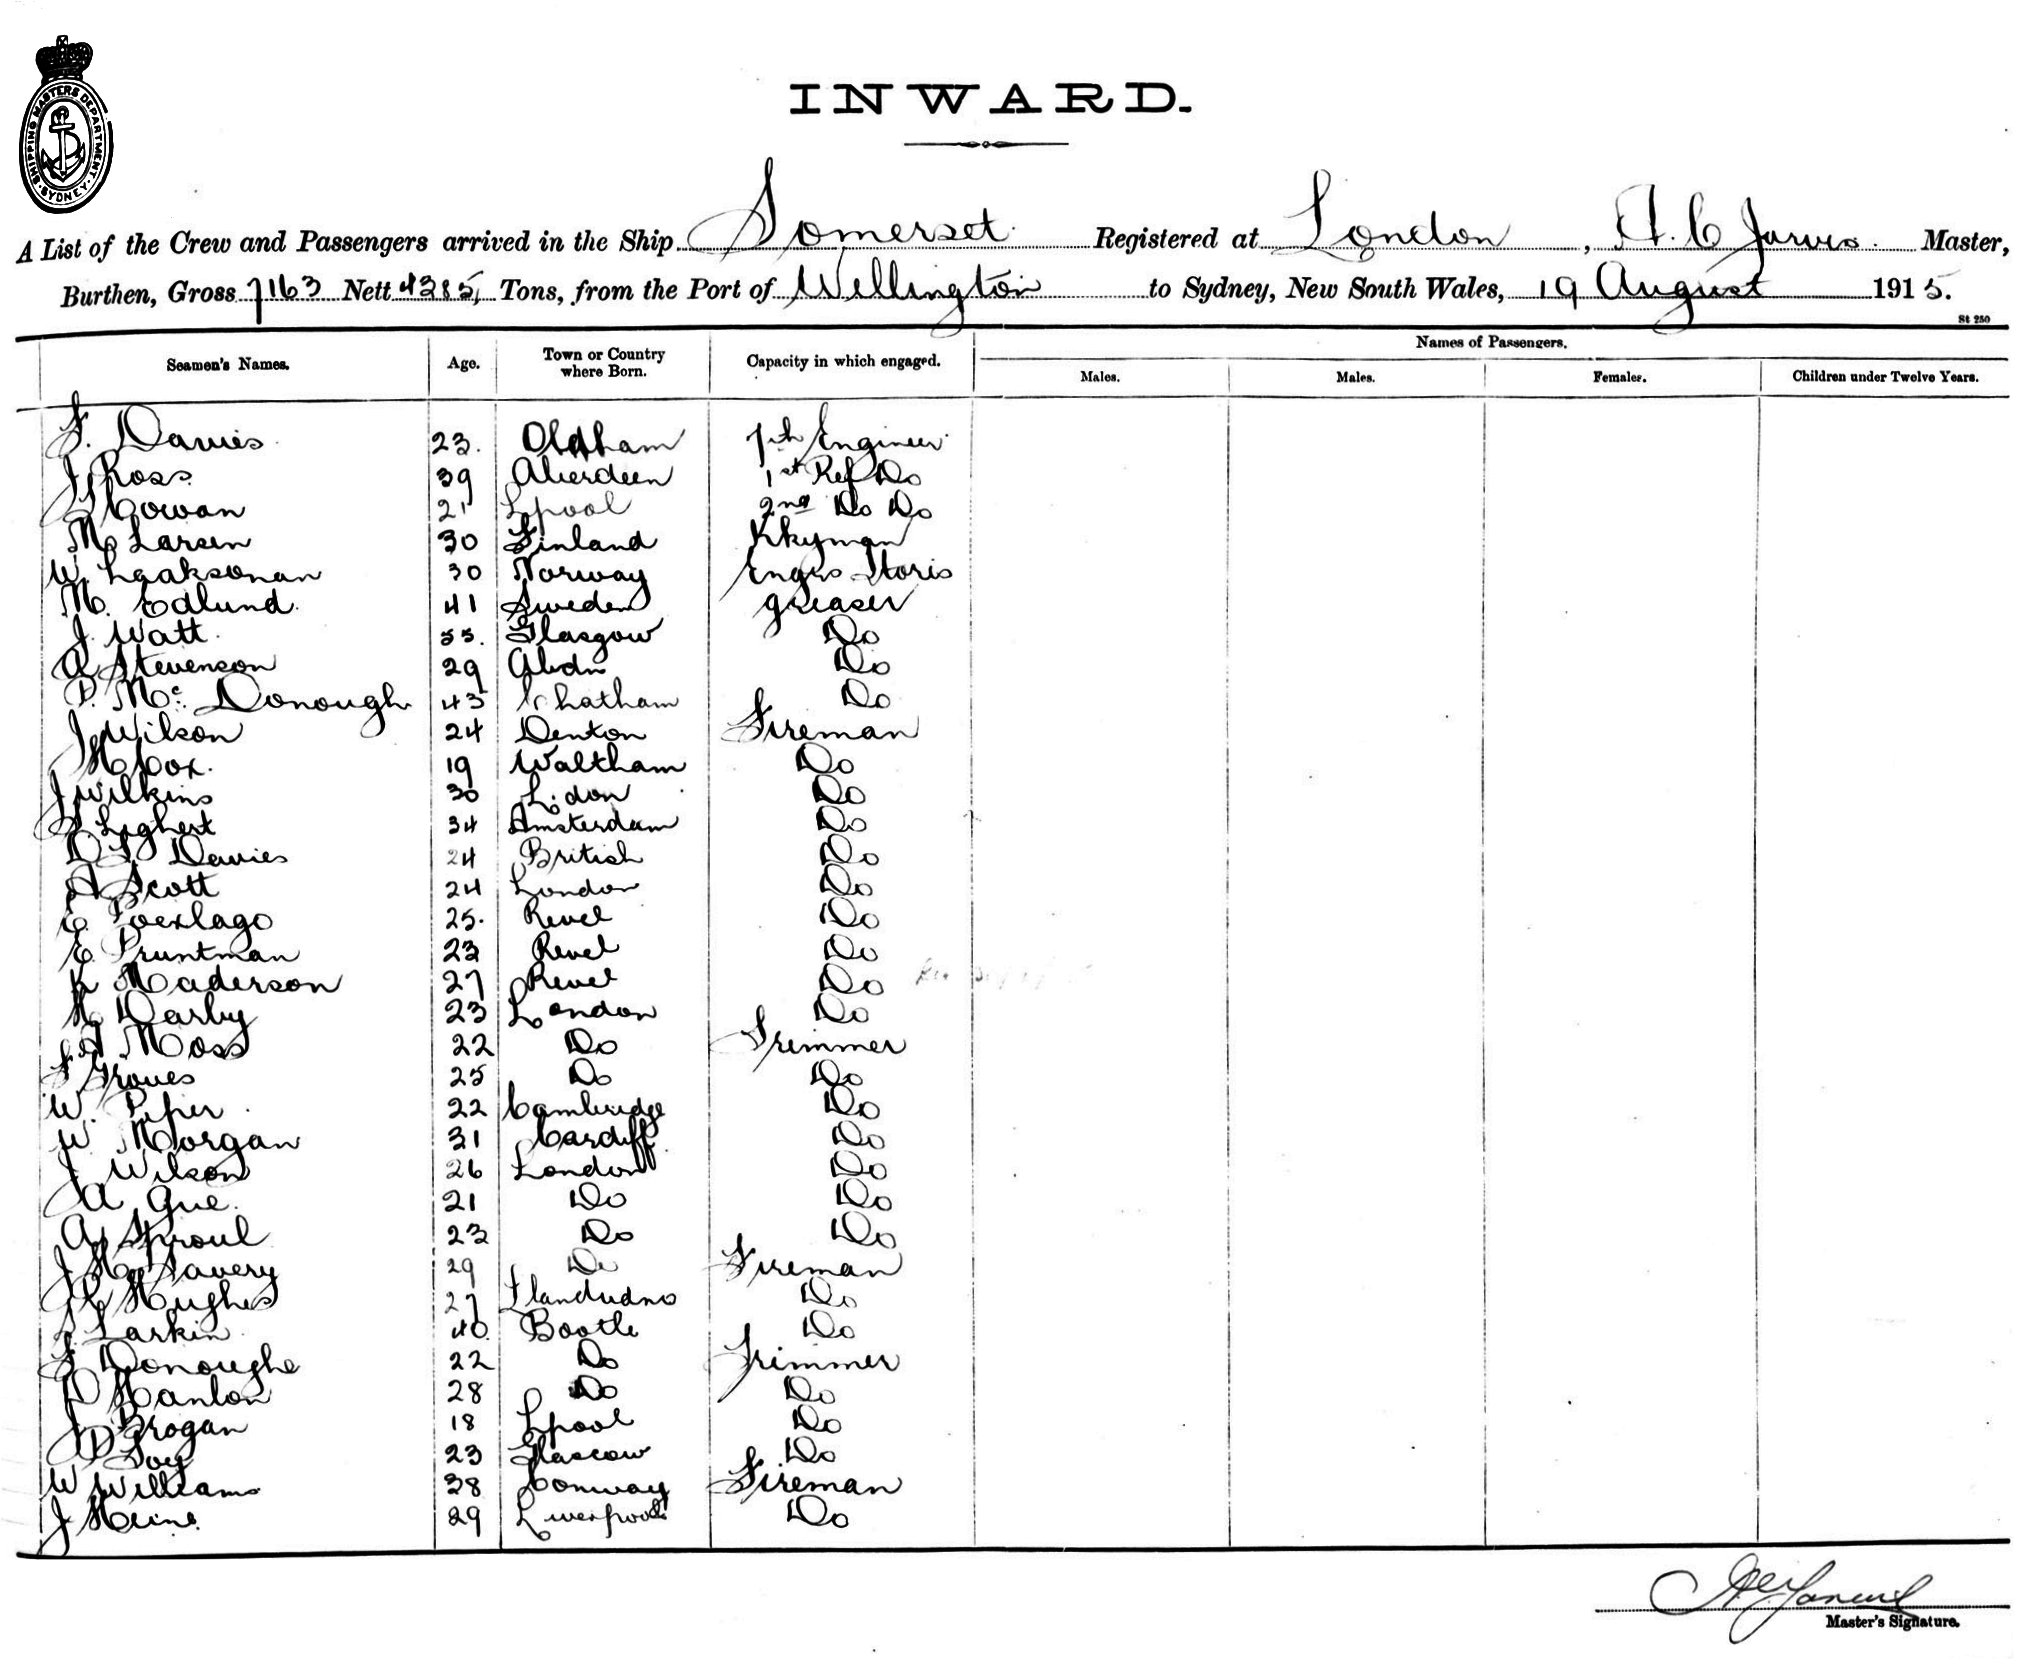 SHIPPING MASTERS DEPARTMENT. SYDNEY.
INWARD.
A List of the Crew and Passengers arrived in the Ship Somerset Registered at London, A. C. Jarvis. Master,
Burthen, Gross 7163 Nett 4385, Tons, from the Port of Wellington to Sydney, New South Wales, 19 August 1915.
St 250
Names of Passengers.
Seamen's Names. Age. Town or Country where Born. Capacity in which engaged. Males. Males. Females. Children under Twelve Years.
F. Davies 23. Oldham 7th Engineer
J Ross 39 Aberdeen 1st Ref Do
Cowan 21 Lpool 2nd Do Do
M Larsen 30 Finland Dkyman
W. Laaksonan 30 Norway Engrs Stores
M. Edlund. 41 Sweden greaser
J. Watt. 55. Glasgow Do
A Stevenson 29 Abdn Do
P. Mc. Donough 43 Chatham Do
J Wilson 24 Denton Fireman
H Cox. 19 Waltham Do
J Wilkins 30 L.don Do
Lighert 34 Amsterdam Do
D. J. Davies 24 British Do
A Scott 24 London Do
E. Poerlago 25. Revel Do
E. Pruntman 23 Revel Do
K Maderson 27 Revel Do
H Darby 23 London Do
A Moss 22 Do Trimmer
F Groves 25 Do Do
W. Piper 22 Cambridge Do
W Morgan 31 Cardiff Do
J Wilson 26 London Do
A Gue. 21 Do Do
A Sproul 23 Do Do
J H Savery 29 Do Fireman
R Hughes 27 Llandudno Do
J Larkin 40 Bootle Do
F Donoughe 22 Do Trimmer
D Hanlon 28 Do Do
J Brogan 18 Lpool Do
D Foy 23 Glascow Do
W Williams 38 Conway Fireman
J Heine. 29 Liverpool Do
Master's Signature.